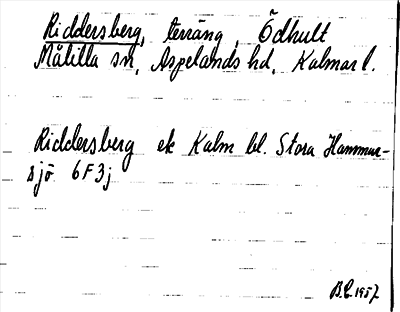 Riddersberg, terräng, Ödhult
Målilla sn, Aspelands hd, Kalmar l.
Riddersberg ek Kalm bl. Stora Hammar-
sjö 6F3j
1957